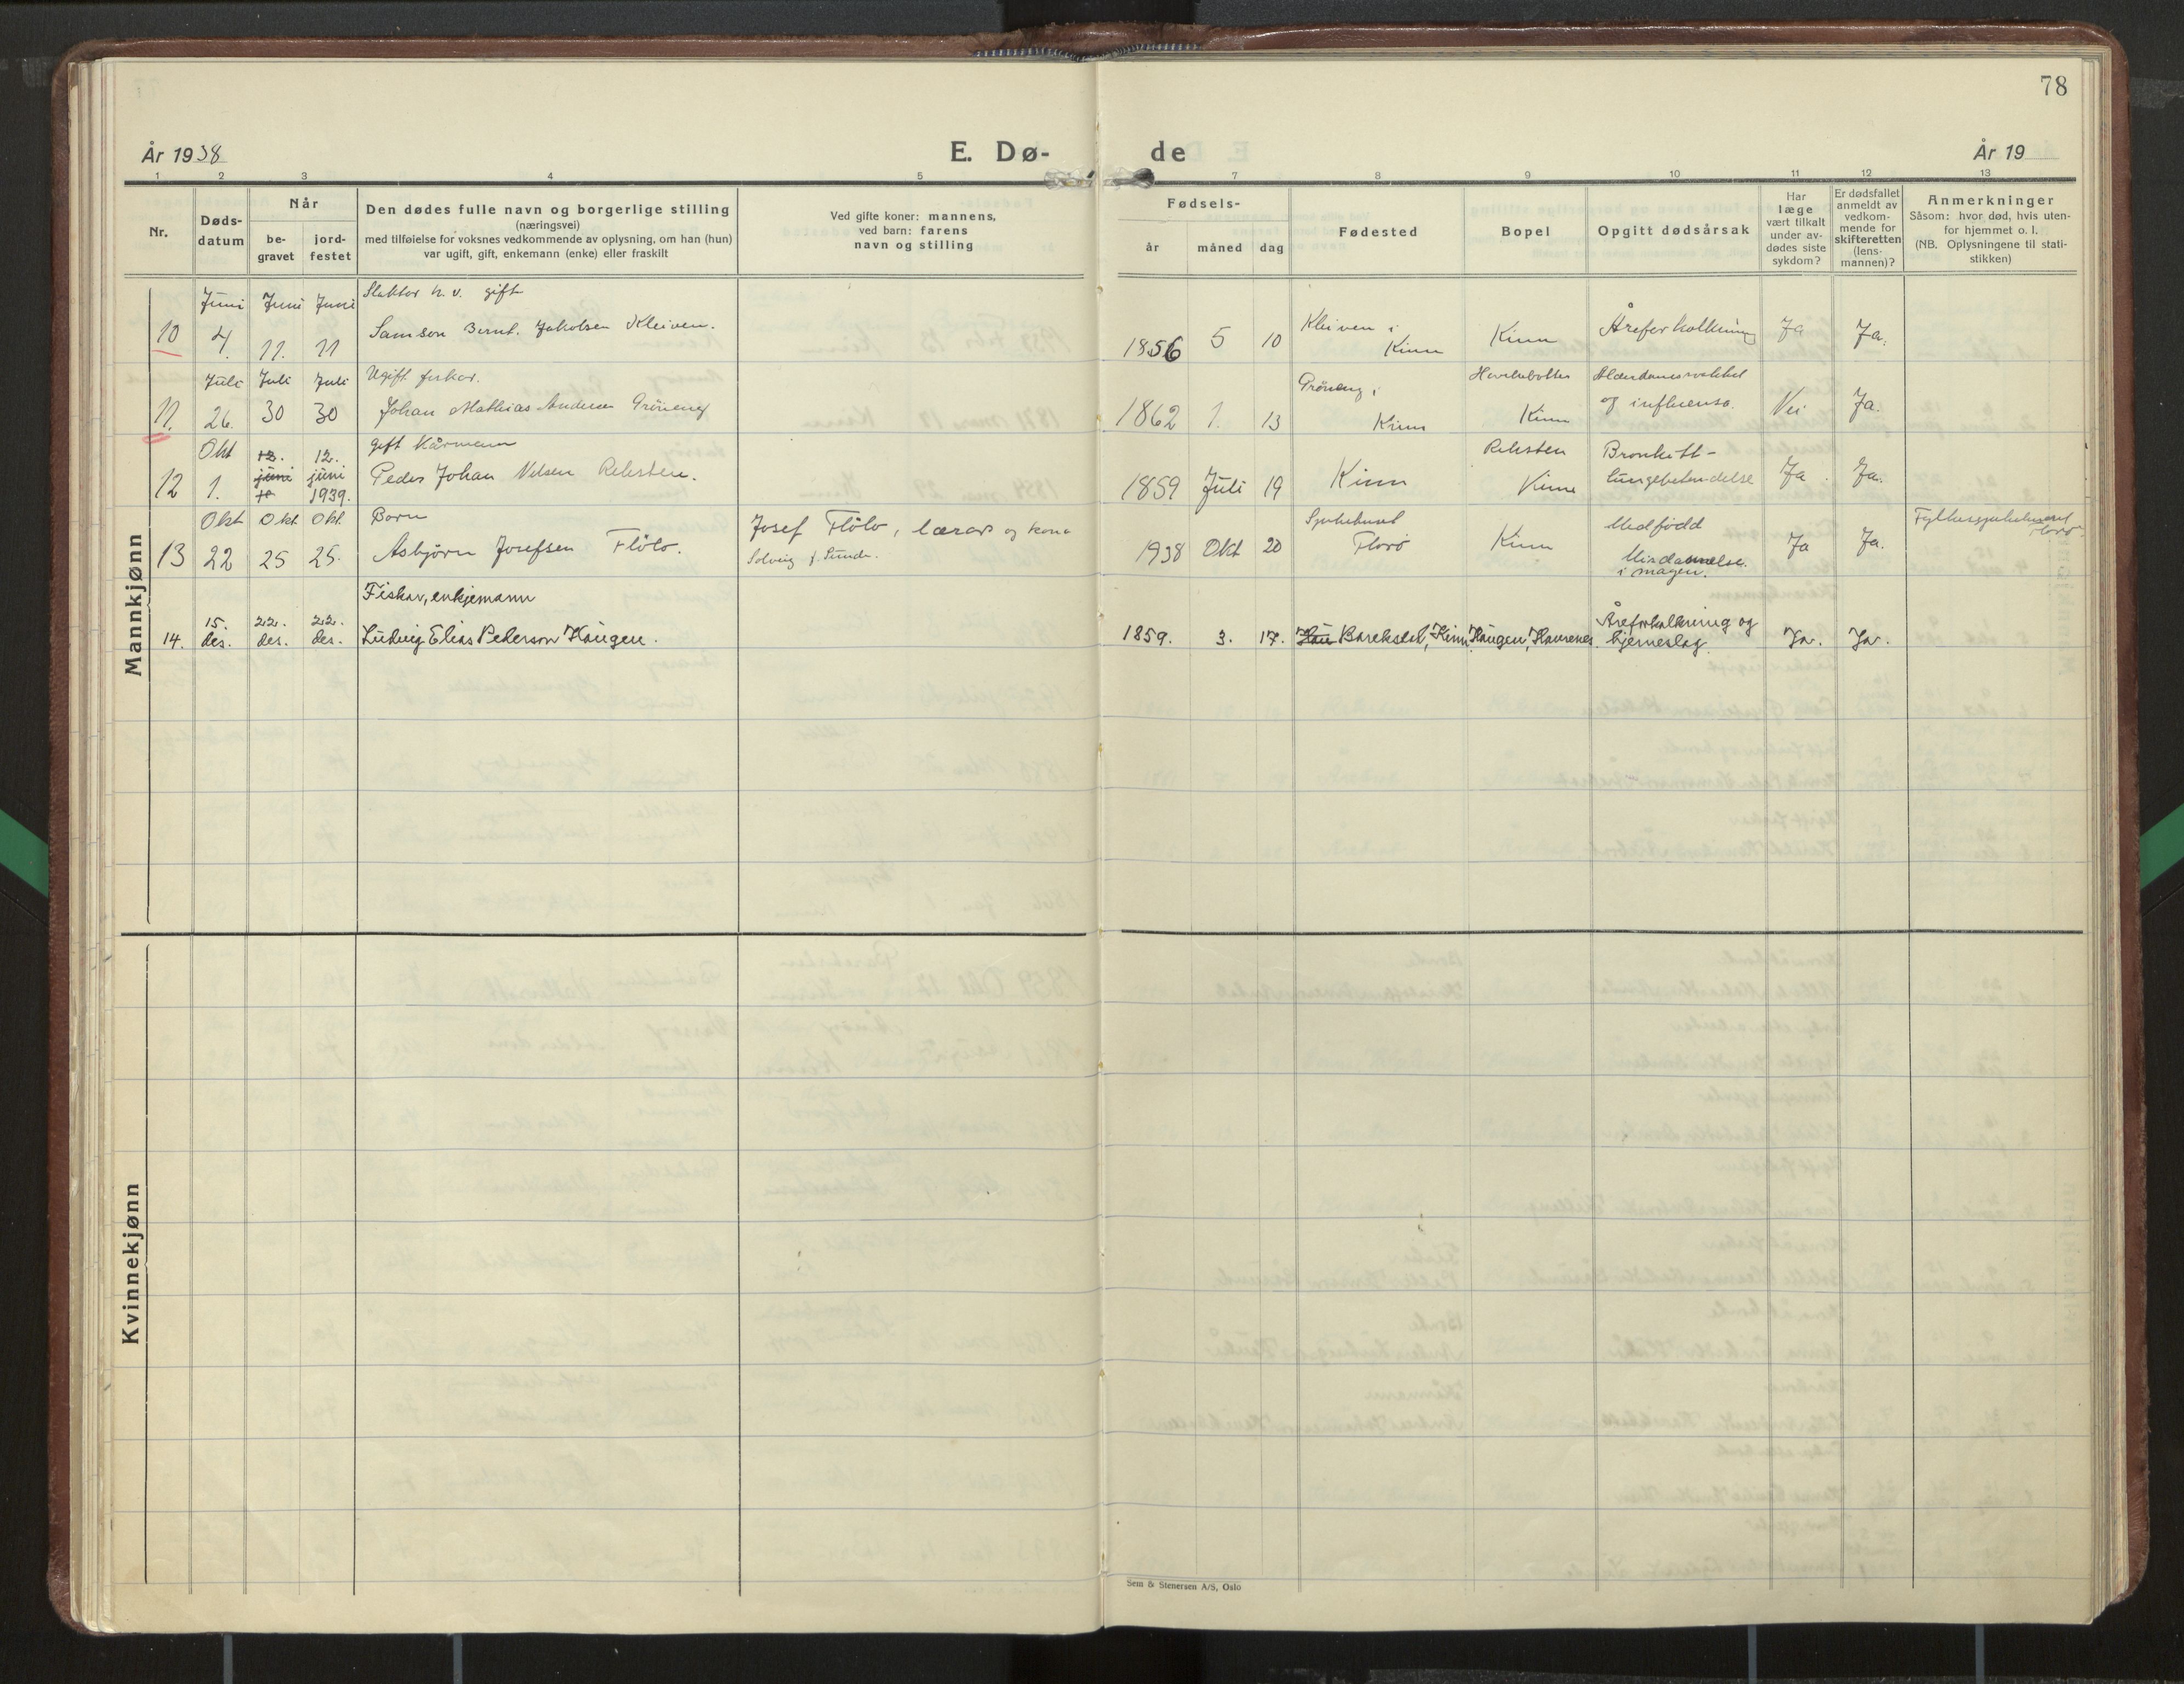 78
År 1938
E. Dø-
de
År 19
1 2 3 4 5 7 8 9 10 11 12 13
Nr.
Døds-
datum
Når
be-
gravet
jord-
festet
Den dødes fulle navn og borgerlige stilling
(næringsvei)
med tilføielse for voksnes vedkommende av oplysning, om han (hun)
var ugift, gift, enkemann (enke) eller fraskilt
Ved gifte koner: mannens,
ved barn: farens
navn og stilling
Fødsels-
år
måned
dag
Fødested
Bopel
Opgitt dødsårsak
Har
læge
vært tilkalt
under av-
dødes siste
sykdom?
Er dødsfallet
anmeldt av
vedkom-
mende for
skifteretten
(lens-
mannen)?
Anmerkninger
Såsom: hvor død, hvis uten-
for hjemmet o. l.
(NB. Oplysningene til stati-
stikken)
Mannkjønn
Juni Juni Juni
gift
10 4. 11. 11 Samson Bernt. Jakobsen Kleiven.
1856 5 10 Kleiven i
Kinn
Kinn
Åreforkalkning
Ja
Ja.
Juli Juli Juli Ugift fiskar.
11. 26. 30 30 Johan Mathias Andersen Gröneng
1862 1. 13 Gröneng i
Kinn
Kinn
og influensa.
Nei
Ja.
Okt 12. 12. gift Kårmann
12 1. juni juni 1939. Peder Johan Nelsen Reksten.
1859 Juli 19 Kinn
Reksten
Kinn
Bronkitt -
Lungebetendelse
Ja
Ja.
Okt Okt Okt. Born
13 22 25 25. Asbjörn Josefsen Flölo.
Josef Flölo, lærar og kona
Solveig f. Sunde.
1938 Okt 20 Sjukehuset
Florö
Kinn
Medfødd
Misdannelse
i magen.
Ja
Ja.
Fylkessjukehuset
Florö.
Fiskar, enkjemann
15. 22. 22.
14. des. des. des. Ludvig Elias Pederson Haugen.
1859. 3. 17. Hau Barekseth, Kinn. Haugen, Havrenes.
Åreforkalkning og
hjerneslag.
Ja.
Ja.
Kvinnekjønn
Sem & Stenersen A/S, Oslo